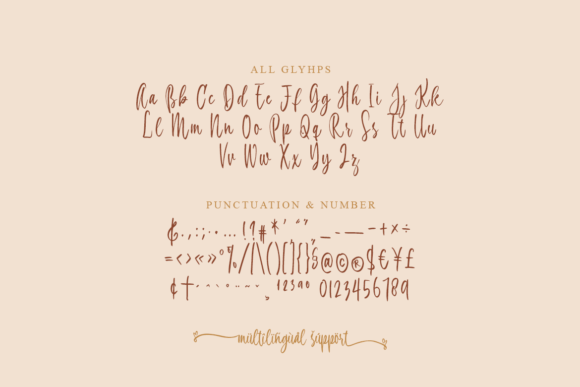 ALL GLYHPS
Aa Bb Cc Dd Ee Ff Gg Hh Ii Jj Kk
Ll Mm Nn Oo Pp Qq Rr Ss Tt Uu
Vv Ww Xx Yy Zz
PUNCTUATION & NUMBER
& . , : ; · • … ! ? # * ' " " _ - — – + × ÷
= < > « » ° % / | \ ( ) [ ] { } § @ © ® $ € ¥ £
¢ † 1 2 3 9 0 0123456789
multilingual support